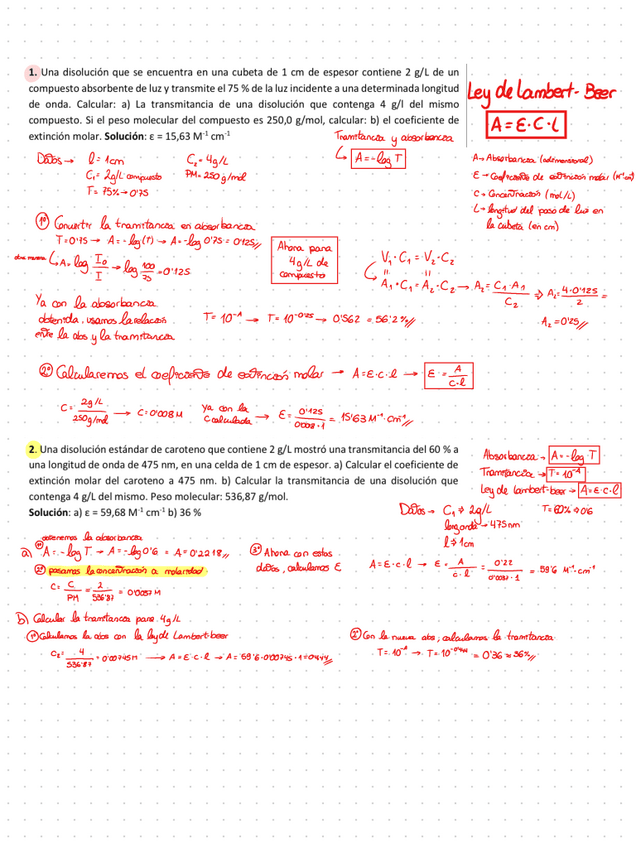 1. Una disolución que se encuentra en una cubeta de 1 cm de espesor contiene 2 g/L de un
compuesto absorbente de luz y transmite el 75 % de la luz incidente a una determinada longitud
de onda. Calcular: a) La transmitancia de una disolución que contenga 4 g/l del mismo
compuesto. Si el peso molecular del compuesto es 250,0 g/mol, calcular: b) el coeficiente de
extinción molar. Solución: ε = 15,63 M⁻¹ cm⁻¹
Ley de Lambert-Beer
A = E·C·l
Tramitancia y absorbancia
A = -log T
A → Absorbancia (adimensional)
E → Coeficiente de extinción molar (M⁻¹cm⁻¹)
C → Concentración (mol/L)
L → longitud del paso de luz en
la cubeta (en cm)
Datos → l = 1cm
C₁ = 2g/L compuesto
T = 75% → 0'75
C₂ = 4g/L
PM = 250 g/mol
1º Convertir la tramitancia en absorbancia
T = 0'75 → A = -log(T) → A = -log 0'75 = 0'125//
A = log I₀/I → log 100/75 = 0'125
Ahora para
4g/L de
compuesto
V₁·C₁ = V₂·C₂
A₁·C₁ = A₂·C₂ → A₂ = C₁·A₁/C₂ ⇒ A₂ = 4·0'125/2 =
A₂ = 0'25//
Ya con la absorbancia
obtenida, usamos la relación
entre la abs y la tramitancia
T = 10⁻ᴬ → T = 10⁻⁰'²⁵ → 0'562 = 56'2%//
2º Calcularemos el coeficiente de extinción molar → A = E·C·l → E = A/c·l
C = 2g/L / 250g/mol → C = 0'008 M
ya con la
C calculada → E = 0'125/0'008·1 = 15'63 M⁻¹·cm⁻¹//
2. Una disolución estándar de caroteno que contiene 2 g/L mostró una transmitancia del 60 % a
una longitud de onda de 475 nm, en una celda de 1 cm de espesor. a) Calcular el coeficiente de
extinción molar del caroteno a 475 nm. b) Calcular la transmitancia de una disolución que
contenga 4 g/L del mismo. Peso molecular: 536,87 g/mol.
Solución: a) ε = 59,68 M⁻¹ cm⁻¹ b) 36 %
Absorbancia → A = -log T
Tramitancia → T = 10⁻ᴬ
Ley de lambert-beer → A = E·C·l
Datos → C₁ ⇒ 2g/L
long onda → 475nm
l ⇒ 1cm
T = 60% ⇒ 0'6
a) 1º obtenemos la absorbancia
A = -log T → A = -log 0'6 = A = 0'2218//
2º pasamos la concentración a molaridad
C = C/PM = 2/536'87 = 0'0037 M
3º Ahora con estos
datos, calculamos E
A = E·c·l → E = A/c·l = 0'22/0'0037·1 = 59'6 M⁻¹·cm⁻¹
b) Calcular la tramitancia para 4g/L
1º Calculamos la abs con la ley de Lambert-beer
C₂ = 4/536'87 = 0'00745M → A = E·C·l → A = 59'6·0'00745·1 = 0'444//
2º Con la nueva abs, calculamos la tramitancia
T = 10⁻ᴬ → T = 10⁻⁰'⁴⁴⁴ = 0'36 ≈ 36%//